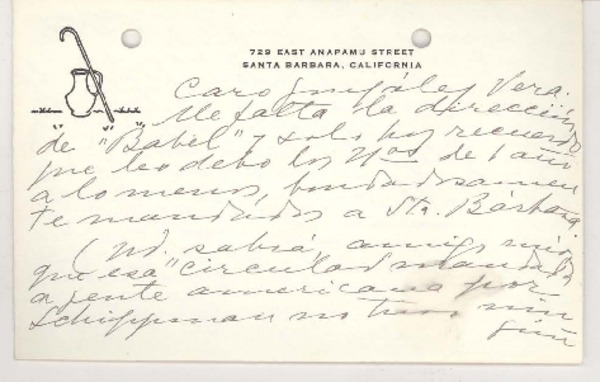 729 EAST ANAPAMU STREET
SANTA BARBARA, CALIFORNIA
Caro González Vera.
Me falta la dirección
de "Babel" y solo hoy recuerdo
que les debo los de 1 año
a lo menos, bondadosamen
te mandados a Sta. Bárbara
(Ud. sabrá, amigo mío,
que esa "circular" mandada
a jente americana por
Schippman no tuvo nin
gún